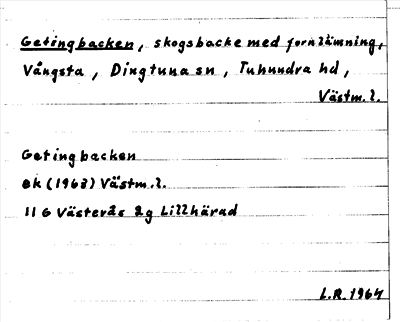 Getingbacken, skogsbacke med fornlämning,
Vångsta, Dingtuna sn, Tuhundra hd,
Västm. l.
Getingbacken
ek (1963) Västm. l.
11 G Västerås 2g Lillhärad
L.R. 1964